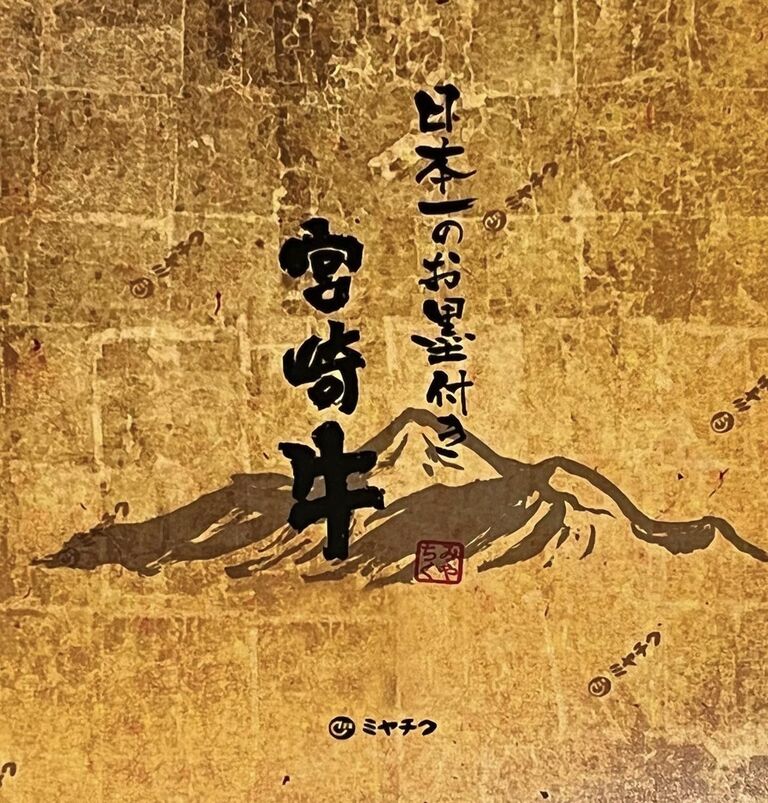 日本一のお墨付き
宮崎牛
みやちく
ミヤチク
ミヤチク
ミヤチク
ミヤチク
ミヤチク